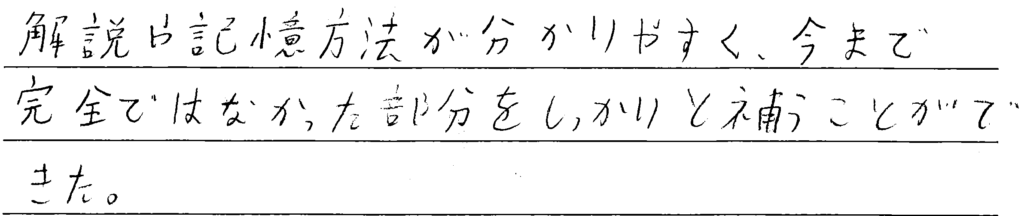 解説や記憶方法が分かりやすく、今まで
完全ではなかった部分をしっかりと補うことがで
きた。